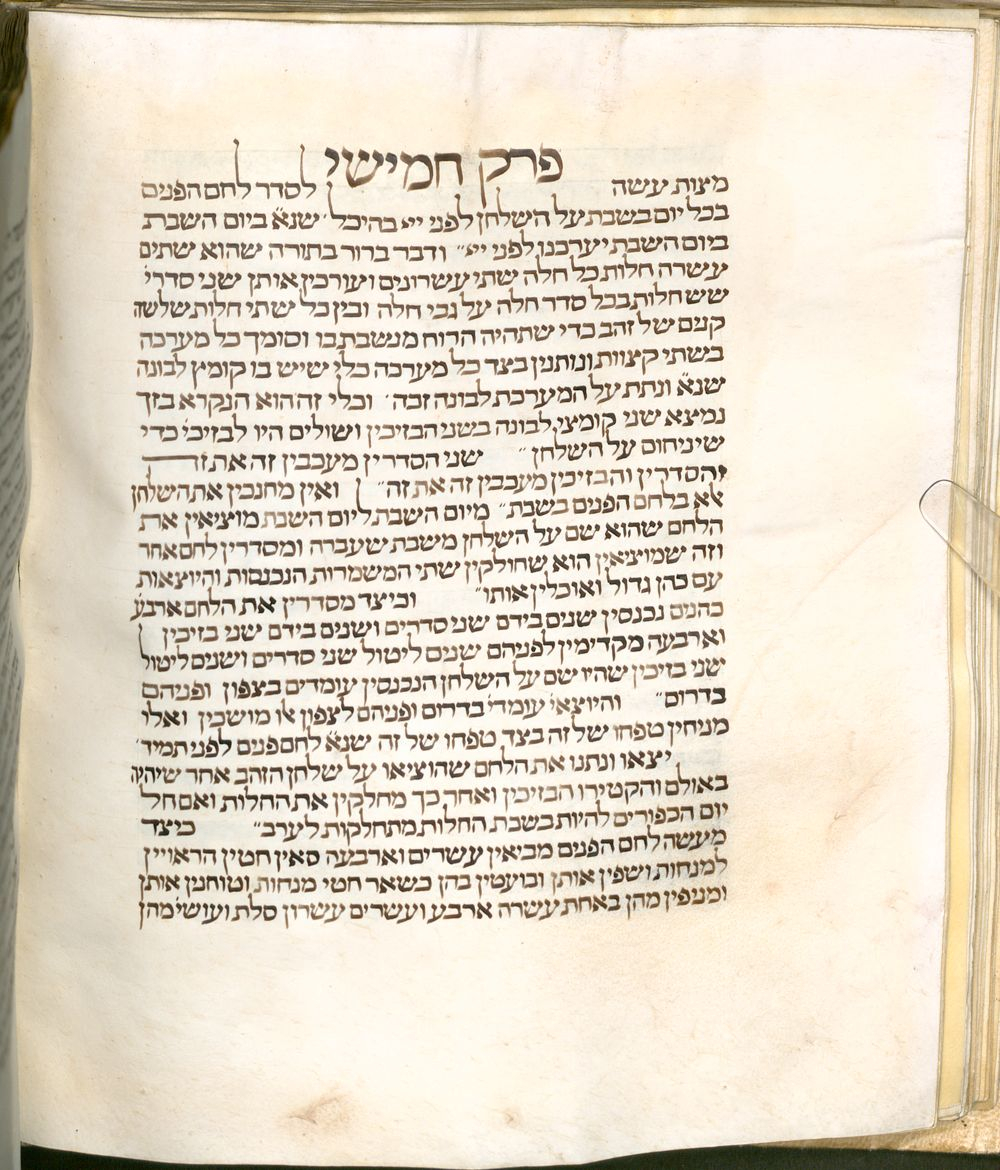 פרק חמישי
מצות עשה לסדר לחם הפנים
בכל יום בשבת על השלחן לפני ייי בהיכל שנא ביום השבת
ביום השבת יערכנו לפני ייי ודבר ברור בתורה שהוא שתים
עשרה חלות כל חלה שתי עשרונים ועורכין אותן שני סדרי
שש חלות בכל סדר חלה על גבי חלה ובין כל שתי חלות שלשה
קנים של זהב כדי שתהיה הרוח מנשבת בו וסומך כל מערכה
בשתי קצוות ונותנין בצד כל מערכה כלי שיש בו קומץ לבונה
שנא ונתת על המערכת לבונה זכה וכלי זה הוא הנקרא בזך
נמצא שני קומצי לבונה בשני הבזיכין ושולים היו לבזיכי כדי
שיניחום על השלחן שני הסדרין מעכבין זה את זה
והסדרין והבזיכין מעכבין זה את זה ואין מחנכין את השלחן
אלא בלחם הפנים בשבת מיום השבת ליום השבת מוציאין את
הלחם שהוא שם על השלחן משבת שעברה ומסדרין לחם אחר
וזה שמוציאין הוא שחולקין שתי המשמרות הנכנסות והיוצאות
עם כהן גדול ואוכלין אותו וכיצד מסדרין את הלחם ארבע
כהנים נכנסין שנים בידם שני סדרים ושנים בידם שני בזיכין
וארבעה מקדימין לפניהם שנים ליטול שני סדרים ושנים ליטול
שני בזיכין שהיו שם על השלחן הנכנסין עומדים בצפון ופניהם
בדרום והיוצאי עומדי בדרום ופניהם לצפון אלו מושכין ואלו
מניחין טפחו של זה בצד טפחו של זה שנא לחם פנים לפני תמיד
יצאו ונתנו את הלחם שהוציאו על שלחן הזהב אחר שיהיה
באולם והקטירו הבזיכין ואחר כך מחלקין את החלות ואם חל
יום הכפורים להיות בשבת החלות מתחלקות לערב כיצד
מעשה לחם הפנים מביאין עשרים וארבעה סאין חטין הראויין
למנחות ושפין אותן ובועטין בהן כשאר חטי מנחות וטוחנין אותן
ומניפין מהן באחת עשרה ארבע ועשרים עשרון סלת ועושי מהן